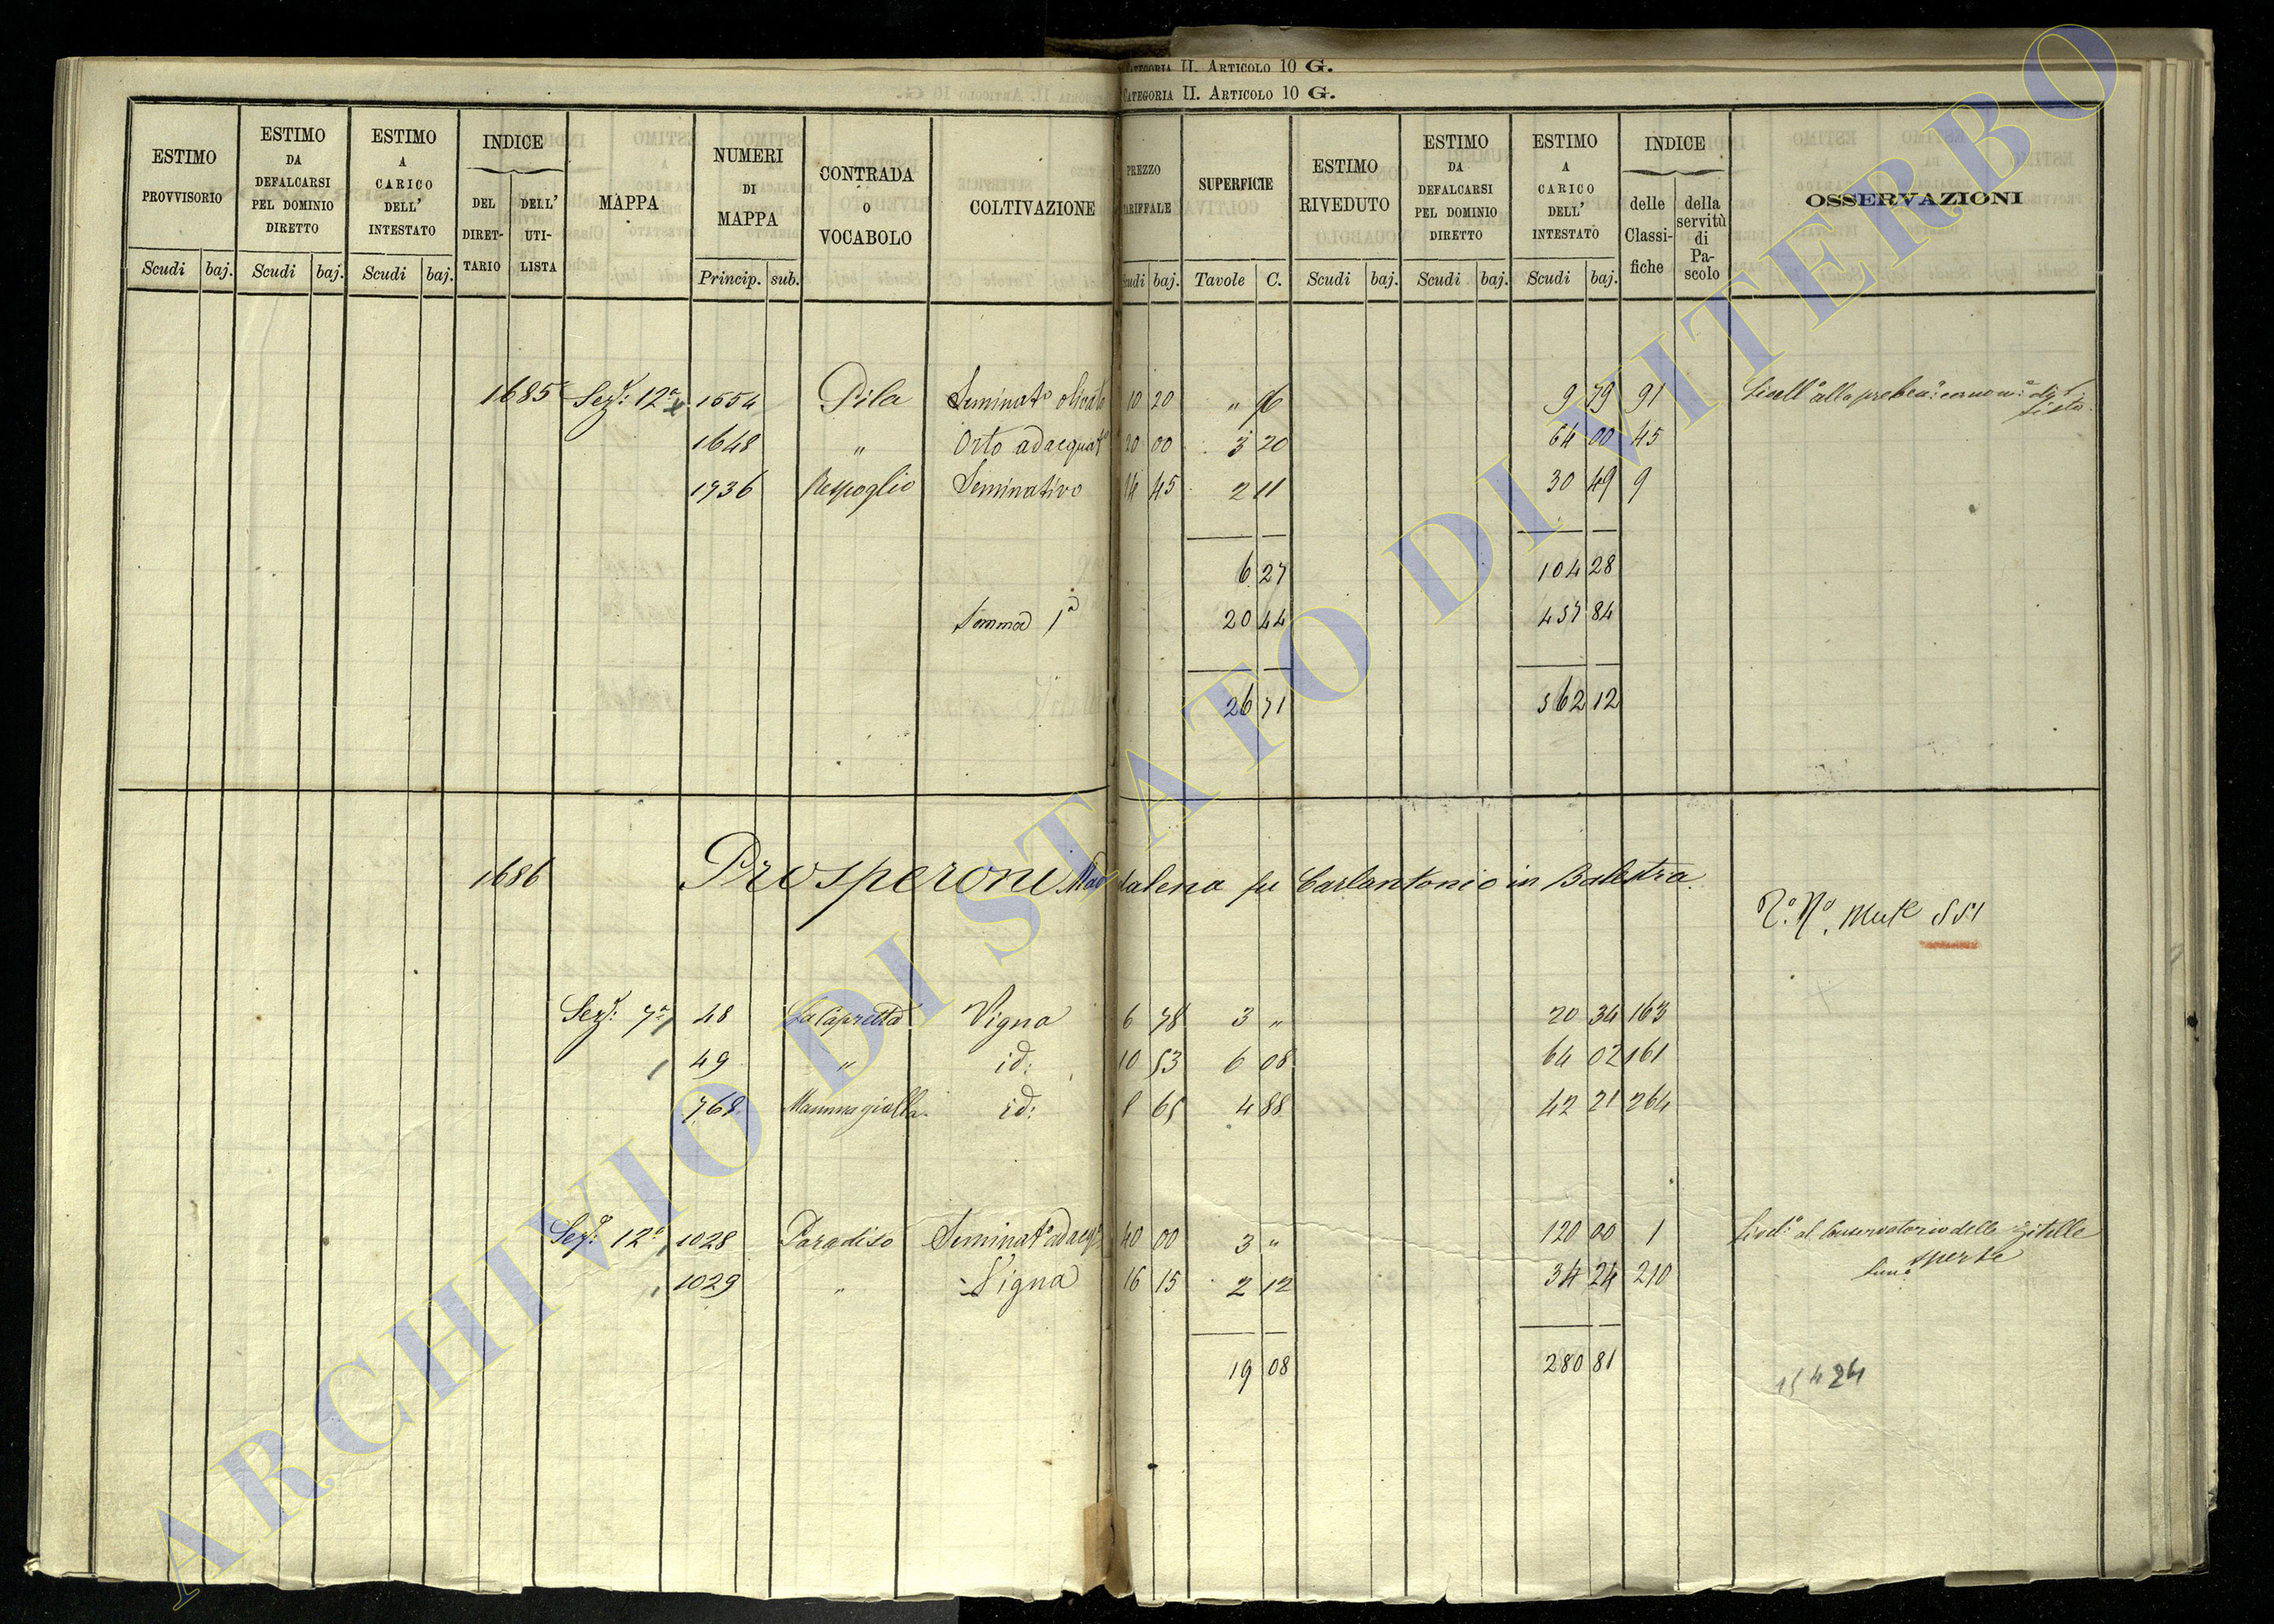 CATEGORIA II. ARTICOLO 10 G.
CATEGORIA II. ARTICOLO 10 G.
ESTIMO PROVVISORIO Scudi baj.
ESTIMO DA DEFALCARSI PEL DOMINIO DIRETTO Scudi baj.
ESTIMO A CARICO DELL' INTESTATO Scudi baj.
INDICE DEL DIRETTARIO DELL' UTILISTA
MAPPA
NUMERI DI MAPPA Princip. sub.
CONTRADA O VOCABOLO
COLTIVAZIONE
PREZZO TARIFFALE Scudi baj.
SUPERFICIE Tavole C.
ESTIMO RIVEDUTO Scudi baj.
ESTIMO DA DEFALCARSI PEL DOMINIO DIRETTO Scudi baj.
ESTIMO A CARICO DELL' INTESTATO Scudi baj.
INDICE delle Classifiche della servitù di Pascolo
OSSERVAZIONI
1685 Sez: 12a 1554 Pila Seminato olivato 10 20 " 96 9 79 91 Livello alla
1648 " Orto adacquato 20 00 3 20 64 00 45
1736 Respoglio Seminativo 14 45 2 11 30 49 9
6 27 104 28
Somma 1a 20 44 457 84
26 71 562 12
1686 Prosperoni Maddalena fu Carlantonio in Balestra.
551
Sez: 7a 48 La Capretta Vigna 6 78 3 " 20 34 163
49 " id: 10 53 6 08 64 02 161
768 Mammagialla id: 8 65 4 88 42 21 264
Sez: 12a 1028 Paradiso Seminato adacqo 40 00 3 " 120 00 1 Livelo al Conservatorio delle Zitelle
sperse
1029 " Vigna 16 15 2 12 34 24 210
19 08 280 81
15424
ARCHIVIO DI STATO DI VITERBO